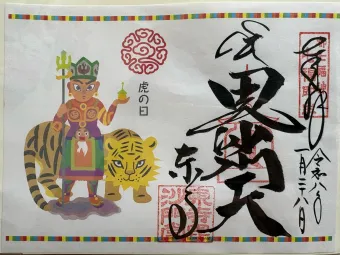 奉拝
令和八年
一月二十八日
毘沙門天
東寺
虎の日